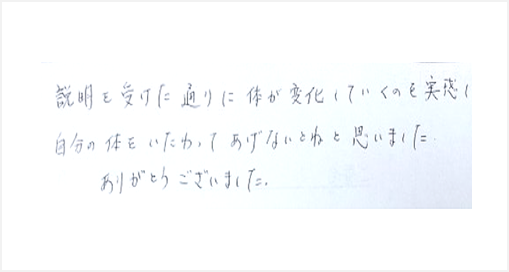 説明を受けた通りに体が変化していくのを実感し
自分の体をいたわってあげないとねと思いました
ありがとうございました。